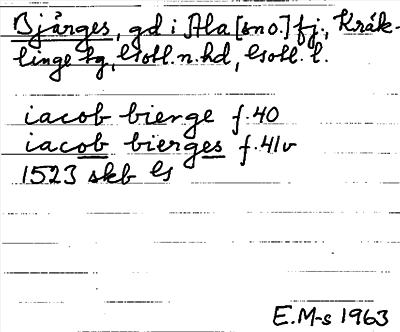 Bjärges, gd i Ala [sno.] fj., Kräk-
linge sg, Gotl. n. hd, Gotl. l.
iacob bierge f. 40
iacob bierges f. 41v
1523 skb G
E.M-s 1963